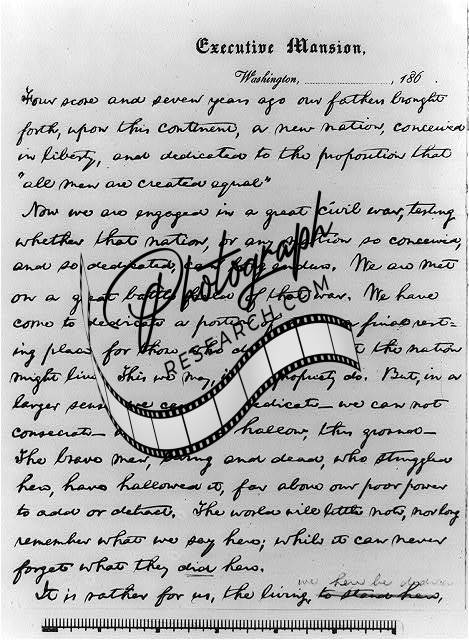 Executive Mansion,
Washington, , 186 .
Four score and seven years ago our fathers brought
forth, upon this continent, a new nation, conceived
in liberty, and dedicated to the proposition that
"all men are created equal"
Now we are engaged in a great civil war, testing
whether that nation, or any nation so conceived,
and so dedicated, endure. We are met
on a great battle of that war. We have
come to dedicate a portion a final rest-
ing place for those who the nation
might live. This we may, propriety do. But, in a
larger sense, we dedicate — we can not
consecrate — hallow, this ground —
The brave men, living and dead, who struggled
here, have hallowed it, far above our poor power
to add or detract. The world will little note, nor long
remember what we say here; while it can never
forget what they did here.
we here be dedica
It is rather for us, the living, to stand here,
Photograph
RESEARCH.COM